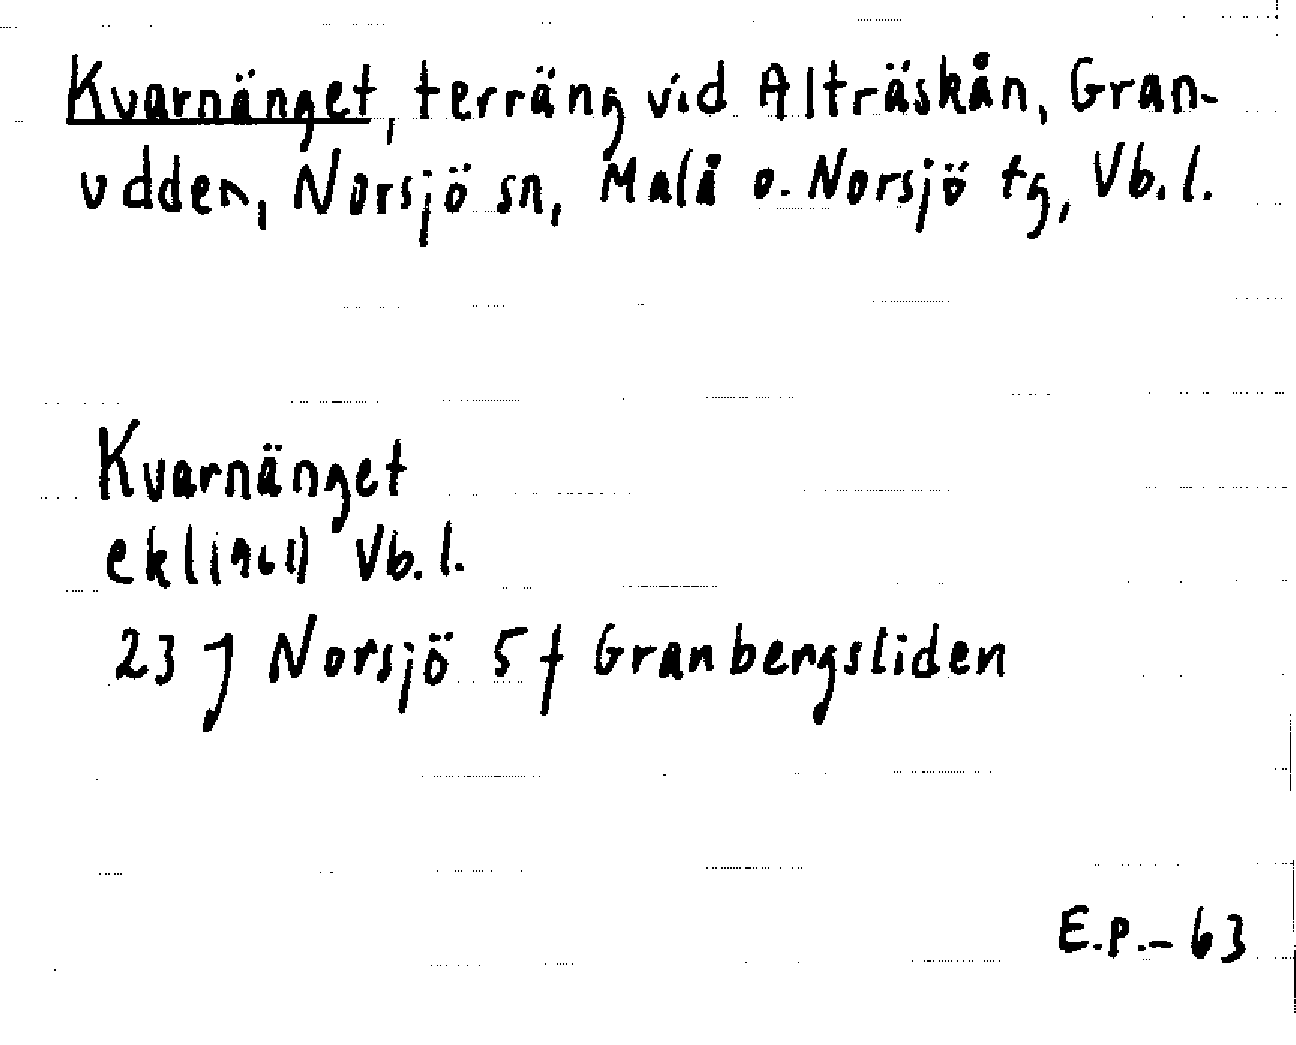 Kvarnänget, terräng vid Alträskån, Gran-
udden, Norsjö sn, Malå o. Norsjö tg, Vb. l.
Kvarnänget
ekl (1961) Vb. l.
23 J Norsjö 5 f Granbergsliden
E.P. – 63